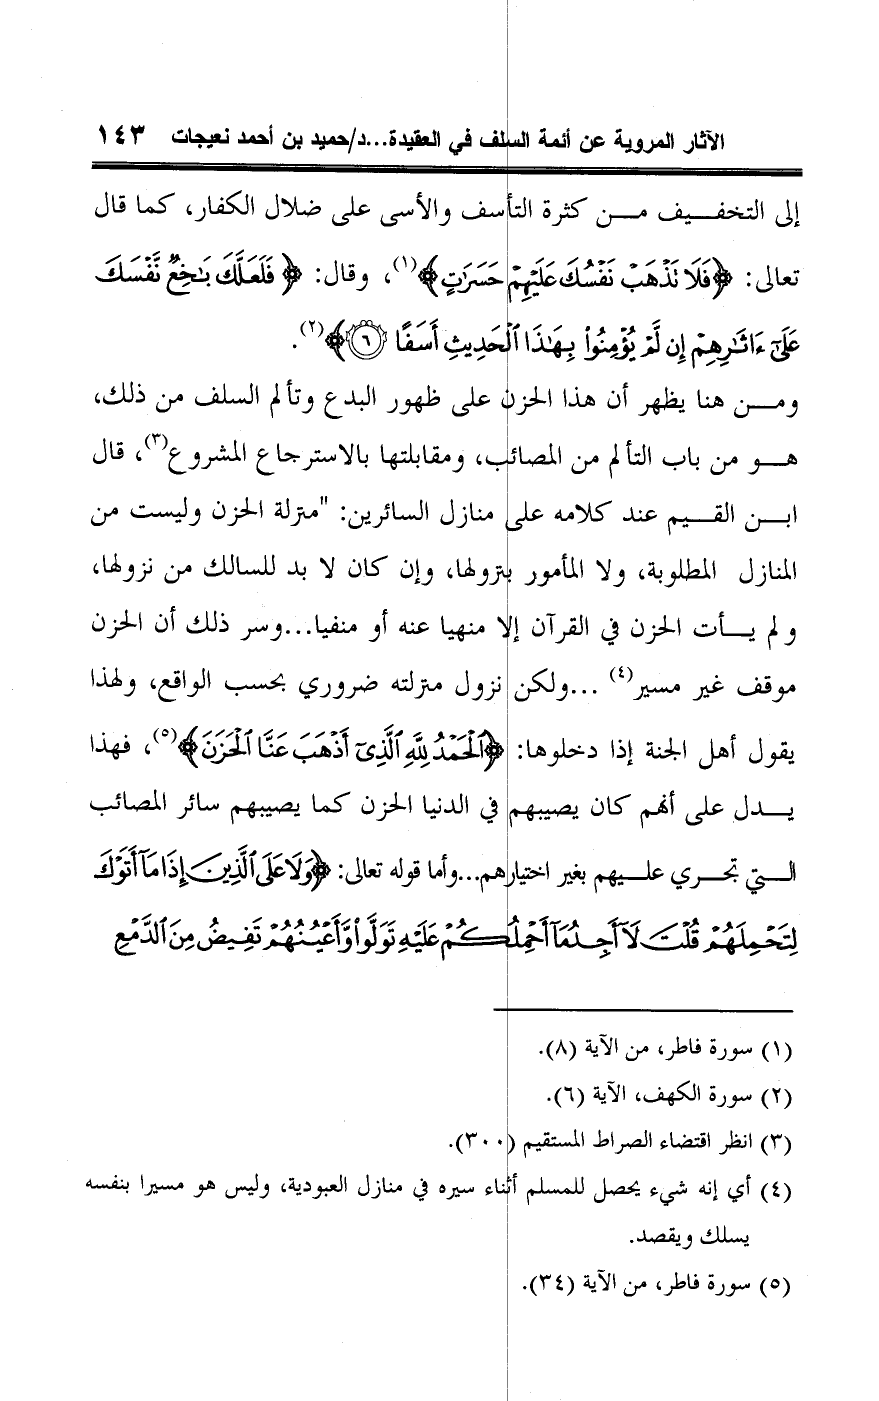 الآثار المروية عن أئمة السلف في العقيدة...د/حميد بن أحمد نعيجات ١٤٣
إلى التخفيف من كثرة التأسف والأسى على ضلال الكفار، كما قال
تعالى: ﴿فَلَا تَذْهَبْ نَفْسُكَ عَلَيْهِمْ حَسَرَاتٍ﴾(١)، وقال: ﴿فَلَعَلَّكَ بَاخِعٌ نَّفْسَكَ
عَلَىٰ ءَاثَارِهِمْ إِن لَّمْ يُؤْمِنُوا۟ بِهَٰذَا ٱلْحَدِيثِ أَسَفًا ٦﴾(٢).
ومن هنا يظهر أن هذا الحزن على ظهور البدع وتألم السلف من ذلك،
هو من باب التألم من المصائب، ومقابلتها بالاسترجاع المشروع(٣)، قال
ابن القيم عند كلامه على منازل السائرين: "منزلة الحزن وليست من
المنازل المطلوبة، ولا المأمور بنزولها، وإن كان لا بد للسالك من نزولها،
ولم يأت الحزن في القرآن إلا منهيا عنه أو منفيا...وسر ذلك أن الحزن
موقف غير مسير(٤) ...ولكن نزول منزلته ضروري بحسب الواقع، ولهذا
يقول أهل الجنة إذا دخلوها: ﴿ٱلْحَمْدُ لِلَّهِ ٱلَّذِىٓ أَذْهَبَ عَنَّا ٱلْحَزَنَ﴾(٥)، فهذا
يدل على أنهم كان يصيبهم في الدنيا الحزن كما يصيبهم سائر المصائب
التي تجري عليهم بغير اختيارهم...وأما قوله تعالى: ﴿وَلَا عَلَى ٱلَّذِينَ إِذَا مَآ أَتَوْكَ
لِتَحْمِلَهُمْ قُلْتَ لَآ أَجِدُ مَآ أَحْمِلُكُمْ عَلَيْهِ تَوَلَّوا۟ وَّأَعْيُنُهُمْ تَفِيضُ مِنَ ٱلدَّمْعِ
(١) سورة فاطر، من الآية (٨).
(٢) سورة الكهف، الآية (٦).
(٣) انظر اقتضاء الصراط المستقيم (٣٠٠).
(٤) أي إنه شيء يحصل للمسلم أثناء سيره في منازل العبودية، وليس هو مسيرا بنفسه
يسلك ويقصد.
(٥) سورة فاطر، من الآية (٣٤).